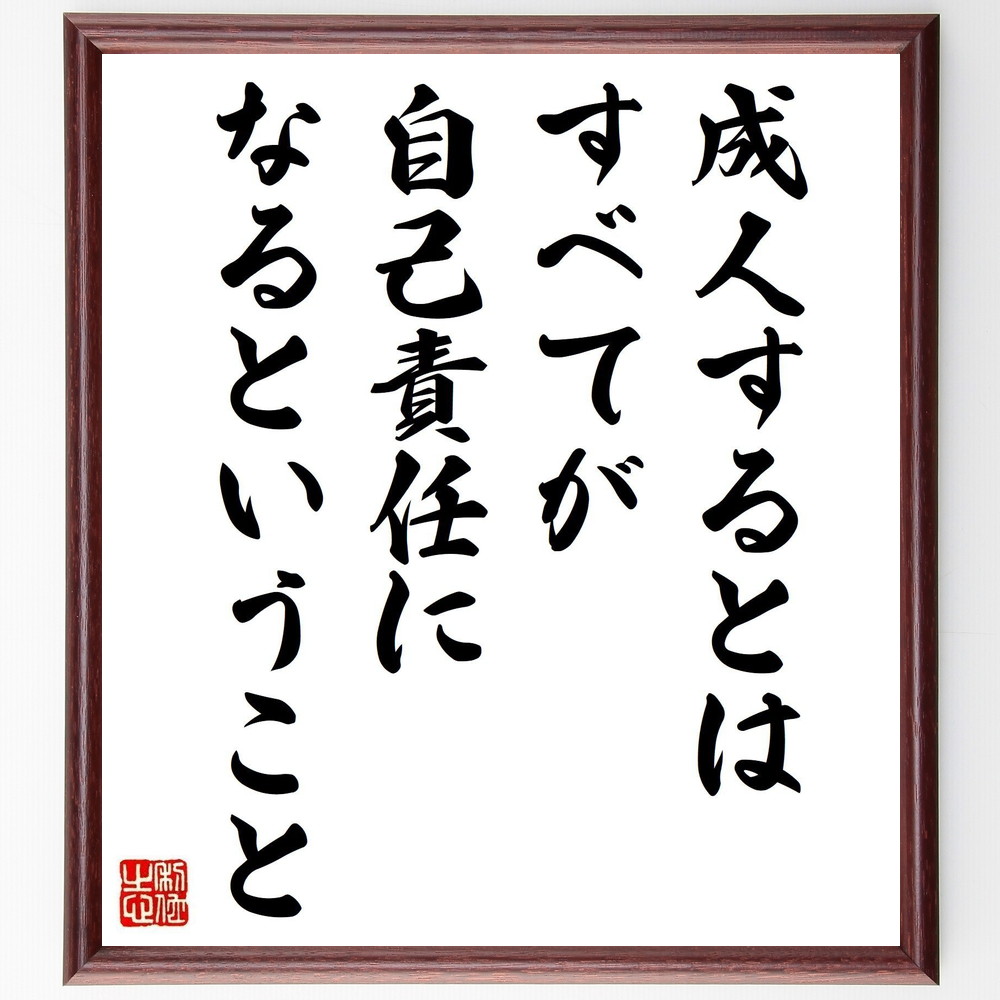 成人するとは
すべてが
自己責任に
なるということ